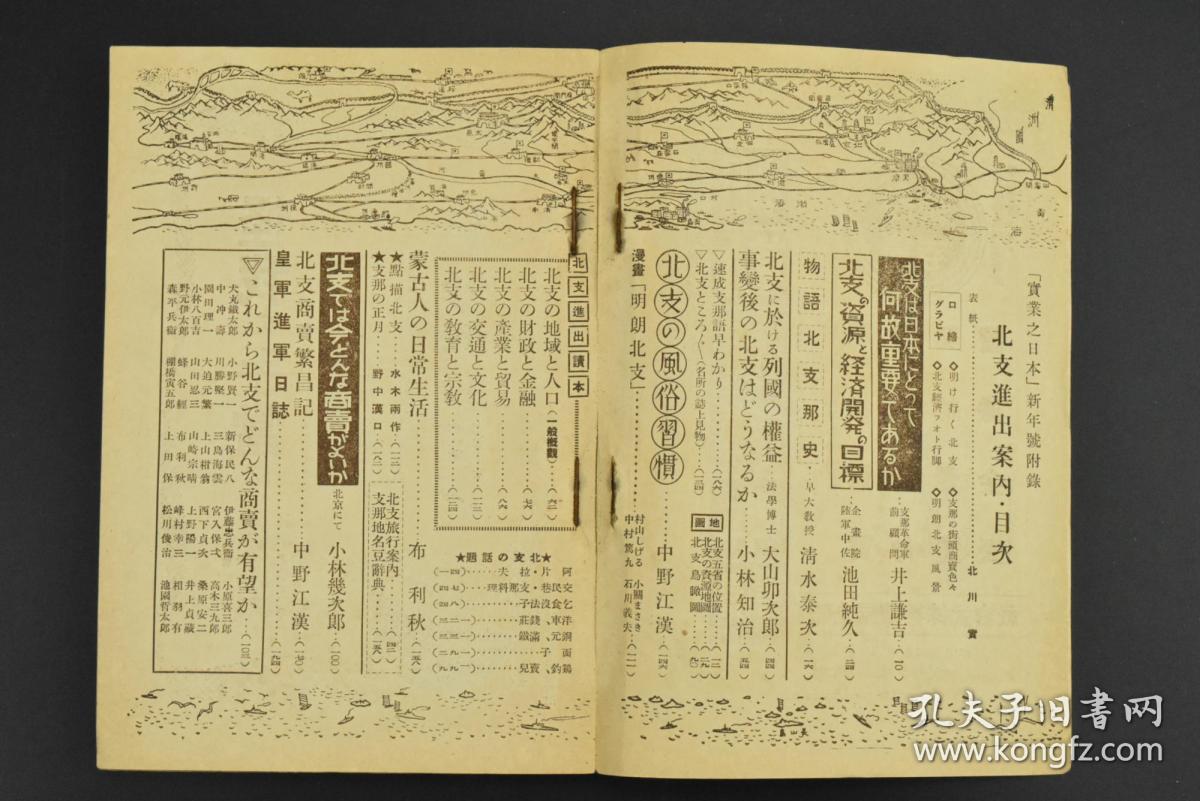 「實業之日本」新年號附錄
北支進出案内・目次
表紙……北川實
口繪グラビヤ
◇明け行く北支
◇支那の街頭商賣色々
◇北支經濟フォト行脚
◇明朗北支風景
北支は日本にとって何故重要であるか
支那革命軍前顧問 井上謙吉…(一〇)
北支の資源と經済開發の目標
企畫院陸軍中佐 池田純久…(二四)
物語北支那史…早大教授 清水泰次…(一六)
北支に於ける列國の權益…法學博士 大山卯次郎…(四四)
事變後の北支はどうなるか…小林知治…(五四)
▽速成支那語早わかり…(一八六)
▽北支ところ〴〵(名所の誌上見物)…(一三四)
地圖
北支五省の位置…(一二)
北支の資源地圖…(二九)
北支鳥瞰圖…(九〇)
北支の風俗習慣…中野江漢…(一四六)
漫畫「明朗北支」
村山しげる 小關まさき
中村篤九 石川義夫…(一一一)
北支進出讀本
北支の地域と人口(一般概觀)…(六二)
北支の財政と金融…(七六)
北支の産業と貿易…(八六)
北支の交通と文化…(一一三)
北支の教育と宗教…(一二四)
★北支の話題★
阿片・拉夫…(四一)
交民巷・支那料理…(四七)
乞食・沒法子…(四八)
洋車・錢莊…(一二三)
銅元・滿鐵…(一三三)
面子…(一三九)
鷄釣・賣兒…(一九九)
蒙古人の日常生活…布利秋…(一五六)
★點描北支…水木兩作…(一二二)
★支那の正月…野中漢口…(一八二)
北支旅行案内…(四二)
支那地名豆辭典…(一五六)
北支では今どんな商賣がよいか
北京にて 小林幾次郎…(一〇〇)
北支商賣繁昌記…中野江漢…(一七〇)
皇軍進軍日誌…(一九四)
▽これから北支でどんな商賣が有望か…(一〇三)
犬丸鐵太郎 小野賢一 新保民八 伊藤忠兵衞 小原喜三郎
中冲壽 川勝堅一 三島海雲 宮入保弌 高木三九郎
園田理一 大迫元繁 上山柑翁 西下貞次 桑原安二
小林八百吉 山田忍三 山崎宗晴 上野陽一 井上貞藏
野元伊太郎 蜂谷經 布利秋 峰村幸三 相羽有
森平兵衞 棚橋寅五郎 上田保 松川俊治 池園哲太郎
滿洲國
渤海
孔夫子旧書网
www.kongfz.com